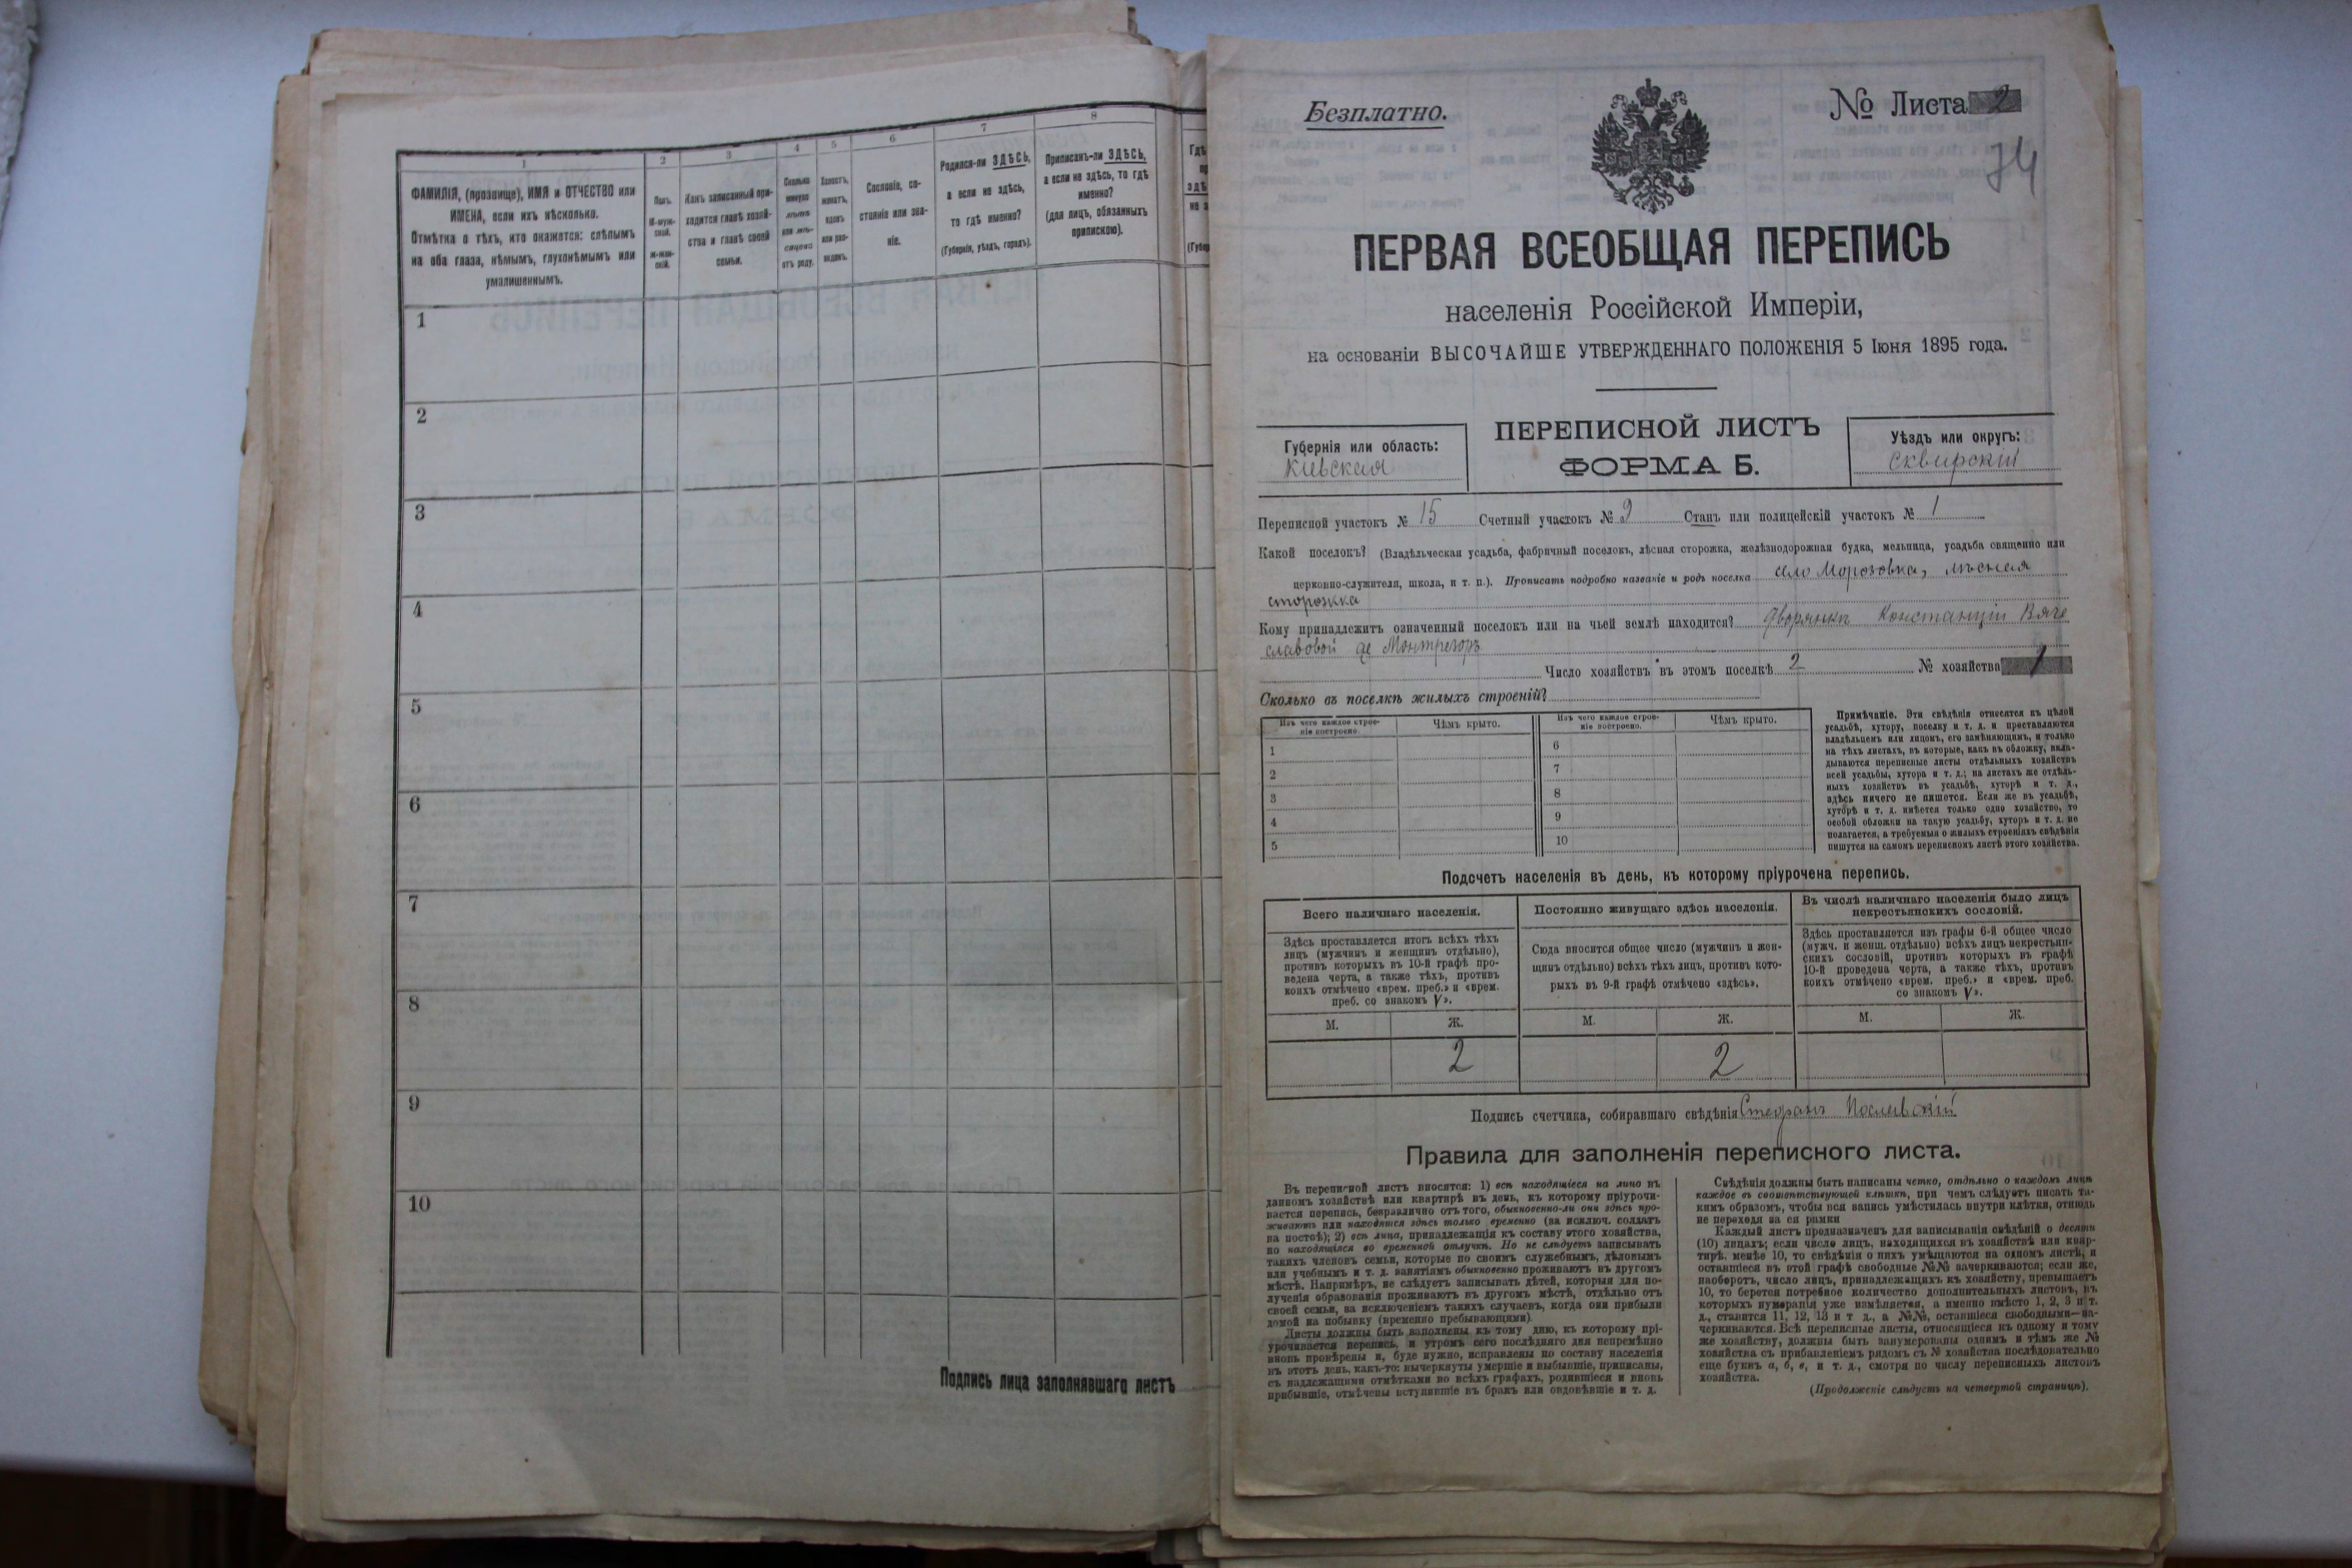 1
2
3
4
5
6
7
8
ФАМИЛІЯ, (прозвище), ИМЯ и ОТЧЕСТВО или
ИМЕНА, если ихъ нѣсколько.
Отмѣтка о тѣхъ, кто окажется: слѣпымъ
на оба глаза, нѣмымъ, глухонѣмымъ или
умалишеннымъ.
Полъ.
М-муж-
ской.
Ж-жен-
скій.
Какъ записанный при-
ходится главѣ хозяй-
ства и главѣ своей
семьи.
Сколько
минуло
лѣтъ
или мѣ-
сяцевъ
отъ роду.
Холостъ,
женатъ,
вдовъ
или раз-
веденъ.
Сословіе, со-
стояніе или зва-
ніе.
Родился-ли ЗДѢСЬ,
а если не здѣсь,
то гдѣ именно?
(Губернія, уѣздъ, городъ).
Приписанъ-ли ЗДѢСЬ,
а если не здѣсь, то гдѣ
именно?
(для лицъ, обязанныхъ
припискою).
1
2
3
4
5
6
7
8
9
10
Подпись лица заполнявшаго листъ
Безплатно.
№ Листа 2
74
ПЕРВАЯ ВСЕОБЩАЯ ПЕРЕПИСЬ
населенія Россійской Имперіи,
на основаніи ВЫСОЧАЙШЕ УТВЕРЖДЕННАГО ПОЛОЖЕНІЯ 5 Іюня 1895 года.
Губернія или область:
Кіевская
ПЕРЕПИСНОЙ ЛИСТЪ
ФОРМА Б.
Уѣздъ или округъ:
Сквирскій
Переписной участокъ № 15 Счетный участокъ № 9 Станъ или полицейскій участокъ № 1
Какой поселокъ? (Владѣльческая усадьба, фабричный поселокъ, лѣсная сторожка, желѣзнодорожная будка, мельница, усадьба священно или
церковно-служителя, школа, и т. п.). Прописать подробно названіе и родъ поселка село Морозовка, лѣсная
сторожка
Кому принадлежитъ означенный поселокъ или на чьей землѣ находится? Дворянкѣ Констанціи Вяче
славовой де Монтрезоръ
Число хозяйствъ въ этомъ поселкѣ 2 № хозяйства 1
Сколько въ поселкѣ жилыхъ строеній?
Изъ чего каждое строе-
ніе построено.
Чѣмъ крыто.
Изъ чего каждое строе-
ніе построено.
Чѣмъ крыто.
1
2
3
4
5
6
7
8
9
10
Примѣчаніе. Эти свѣдѣнія относятся къ цѣлой
усадьбѣ, хутору, поселку и т. д. и проставляются
владѣльцемъ или лицомъ, его замѣняющимъ, и только
на тѣхъ листахъ, въ которые, какъ въ обложку, вкла-
дываются переписные листы отдѣльныхъ хозяйствъ
всей усадьбы, хутора и т. д.; на листахъ же отдѣль-
ныхъ хозяйствъ въ усадьбѣ, хуторѣ и т. д.,
здѣсь ничего не пишется. Если же въ усадьбѣ,
хуторѣ и т. д. имѣется только одно хозяйство, то
особой обложки на такую усадьбу, хуторъ и т. д. не
полагается, а требуемыя о жилыхъ строеніяхъ свѣдѣнія
пишутся на самомъ переписномъ листѣ этого хозяйства.
Подсчетъ населенія въ день, къ которому пріурочена перепись.
Всего наличнаго населенія.
Здѣсь проставляется итогъ всѣхъ тѣхъ
лицъ (мужчинъ и женщинъ отдѣльно),
противъ которыхъ въ 10-й графѣ про-
ведена черта, а также тѣхъ, противъ
коихъ отмѣчено «врем. преб.» и «врем.
преб. со знакомъ V».
Постоянно живущаго здѣсь населенія.
Сюда вносится общее число (мужчинъ и жен-
щинъ отдѣльно) всѣхъ тѣхъ лицъ, противъ кото-
рыхъ въ 9-й графѣ отмѣчено «здѣсь».
Въ числѣ наличнаго населенія было лицъ
некрестьянскихъ сословій.
Здѣсь проставляется изъ графы 6-й общее число
(мужч. и женщ. отдѣльно) всѣхъ лицъ некрестьян-
скихъ сословій, противъ которыхъ въ графѣ
10-й проведена черта, а также тѣхъ, противъ
коихъ отмѣчено «врем. преб.» и «врем. преб.
со знакомъ V».
М. Ж. М. Ж. М. Ж.
2 2
Подпись счетчика, собиравшаго свѣдѣнія Стефанъ
Правила для заполненія переписного листа.
Въ переписной листъ вносятся: 1) всѣ находящіеся на лицо въ
данномъ хозяйствѣ или квартирѣ въ день, къ которому пріурочи-
вается перепись, безразлично отъ того, обыкновенно-ли они здѣсь про-
живаютъ или находятся здѣсь только временно (за исключ. солдатъ
на постоѣ); 2) всѣ лица, принадлежащія къ составу этого хозяйства,
но находящіяся во временной отлучкѣ. Но не слѣдуетъ записывать
такихъ членовъ семьи, которые по своимъ служебнымъ, дѣловымъ
или учебнымъ и т. д. занятіямъ обыкновенно проживаютъ въ другомъ
мѣстѣ. Напримѣръ, не слѣдуетъ записывать дѣтей, которыя для по-
лученія образованія проживаютъ въ другомъ мѣстѣ, отдѣльно отъ
своей семьи, за исключеніемъ такихъ случаевъ, когда они прибыли
домой на побывку (временно пребывающими).
Листы должны быть заполнены къ тому дню, къ которому прі-
урочивается перепись, и утромъ сего послѣдняго дня непремѣнно
вновь провѣрены и, буде нужно, исправлены по составу населенія
въ этотъ день, какъ-то: вычеркнуты умершіе и выбывшіе, приписаны,
съ надлежащими отмѣтками во всѣхъ графахъ, родившіеся и вновь
прибывшіе, отмѣчены вступившіе въ бракъ или овдовѣвшіе и т. д.
Свѣдѣнія должны быть написаны четко, отдѣльно о каждомъ лицѣ
каждое въ соотвѣтствующей клѣткѣ, при чемъ слѣдуетъ писать та-
кимъ образомъ, чтобы вся запись умѣстилась внутри клѣтки, отнюдь
не переходя за ея рамки
Каждый листъ предназначенъ для записыванія свѣдѣній о десяти
(10) лицахъ; если число лицъ, находящихся въ хозяйствѣ или квар-
тирѣ, менѣе 10, то свѣдѣнія о нихъ умѣщаются на одномъ листѣ, и
оставшіеся въ этой графѣ свободные №№ зачеркиваются; если же,
наоборотъ, число лицъ, принадлежащихъ къ хозяйству, превышаетъ
10, то берется потребное количество дополнительныхъ листовъ, въ
которыхъ нумерація уже измѣняется, а именно вмѣсто 1, 2, 3 и т.
д., ставится 11, 12, 13 и т д., а №№, оставшіеся свободными—за-
черкиваются. Всѣ переписные листы, относящіеся къ одному и тому
же хозяйству, должны быть занумерованы однимъ и тѣмъ же №
хозяйства съ прибавленіемъ рядомъ съ № хозяйства послѣдовательно
еще буквъ а, б, в, и т. д., смотря по числу переписныхъ листовъ
хозяйства.
(Продолженіе слѣдуетъ на четвертой страницѣ).